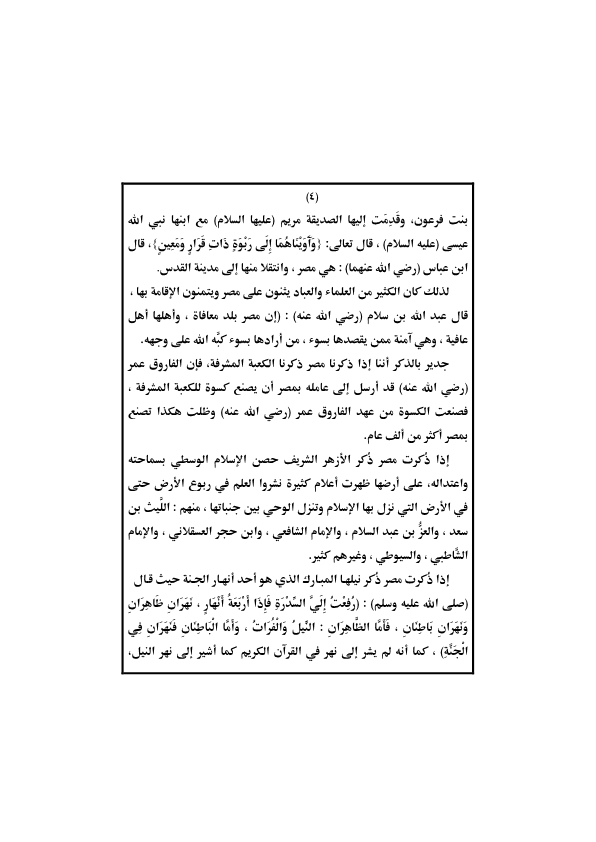 (٤)
بنت فرعون، وقَدِمَت إليها الصديقة مريم (عليها السلام) مع ابنها نبي الله
عيسى (عليه السلام) ، قال تعالى: {وَآوَيْنَاهُمَا إِلَى رَبْوَةٍ ذَاتِ قَرَارٍ وَمَعِينٍ}، قال
ابن عباس (رضي الله عنهما) : هي مصر ، وانتقلا منها إلى مدينة القدس.
لذلك كان الكثير من العلماء والعباد يثنون على مصر ويتمنون الإقامة بها ،
قال عبد الله بن سلام (رضي الله عنه) : (إن مصر بلد معافاة ، وأهلها أهل
عافية ، وهي آمنة ممن يقصدها بسوء ، من أرادها بسوء كبَّه الله على وجهه.
جدير بالذكر أننا إذا ذكرنا مصر ذكرنا الكعبة المشرفة، فإن الفاروق عمر
(رضي الله عنه) قد أرسل إلى عامله بمصر أن يصنع كسوة للكعبة المشرفة ،
فصنعت الكسوة من عهد الفاروق عمر (رضي الله عنه) وظلت هكذا تصنع
بمصر أكثر من ألف عام.
إذا ذُكرت مصر ذُكر الأزهر الشريف حصن الإسلام الوسطي بسماحته
واعتداله، على أرضها ظهرت أعلام كثيرة نشروا العلم في ربوع الأرض حتى
في الأرض التي نزل بها الإسلام وتنزل الوحي بين جنباتها ، منهم : اللَّيث بن
سعد ، والعزُّ بن عبد السلام ، والإمام الشافعي ، وابن حجر العسقلاني ، والإمام
الشَّاطبي ، والسيوطي ، وغيرهم كثير.
إذا ذُكرت مصر ذُكر نيلها المبارك الذي هو أحد أنهار الجنة حيث قال
(صلى الله عليه وسلم) : (رُفِعْتُ إِلَيَّ السِّدْرَةِ فَإِذَا أَرْبَعَةُ أَنْهَارٍ ، نَهَرَانِ ظَاهِرَانِ
وَنَهَرَانِ بَاطِنَانِ ، فَأَمَّا الظَّاهِرَانِ : النِّيلُ وَالْفُرَاتُ ، وَأَمَّا الْبَاطِنَانِ فَنَهَرَانِ فِي
الْجَنَّةِ) ، كما أنه لم يشر إلى نهر في القرآن الكريم كما أشير إلى نهر النيل،